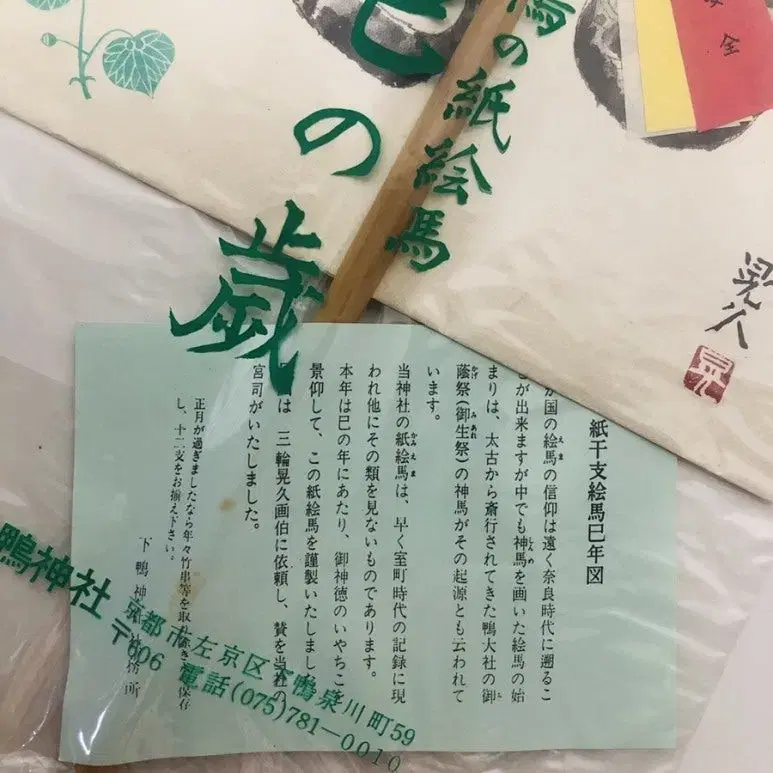 の紙絵馬
巳の歳
全
晃久
晃
紙干支絵馬巳年図
国の絵馬の信仰は遠く奈良時代に遡るこ
が出来ますが中でも神馬を画いた絵馬の始
まりは、太古から斎行されてきた鴨大社の御
蔭祭(御生祭)の神馬がその起源とも云われて
います。
当神社の紙絵馬は、早く室町時代の記録に現
われ他にその類を見ないものであります。
本年は巳の年にあたり、御神徳のいやちこを
景仰して、この紙絵馬を謹製いたしまし
は 三輪晃久画伯に依頼し、賛を当社の
宮司がいたしました。
正月が過ぎましたなら年々竹串等を取り除き保存
し、十二支をお揃え下さい。
下鴨神社社務所
鴨神社
京都市左京区下鴨泉川町59
〒606 電話(075)781-0010